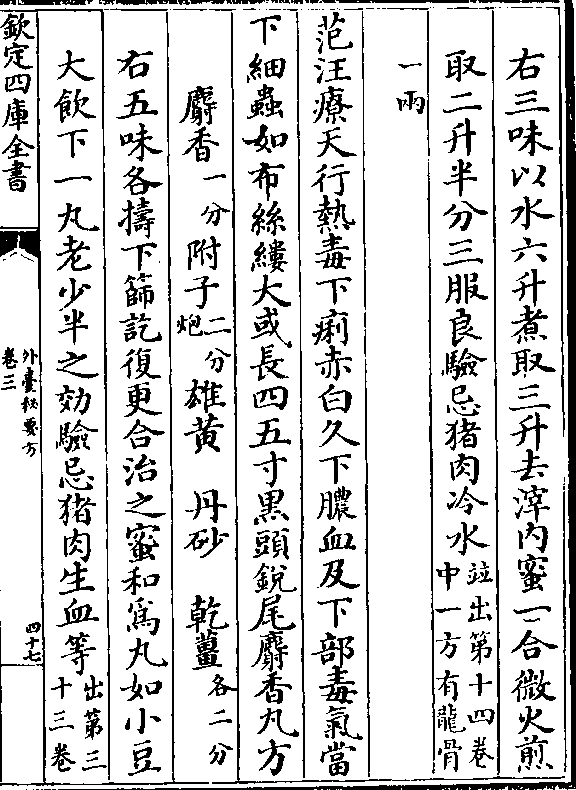 右三味以水六升煮取三升去滓内蜜一合微火煎
取二升半分三服良驗忌豬肉冷水並出第十四卷中一方有龍骨
一兩
范汪療天行熱毒下痢赤白久下膿血及下部毒氣當
下細蟲如布絲縷大或長四五寸黒頭鋭尾麝香丸方
麝香一分附子二分炮雄黄 丹砂 乾薑各二分
右五味各擣下篩訖復更合治之蜜和為丸如小豆
大飲下一丸老少半之効驗忌豬肉生血等出第三十三卷
欽定四庫全書
外臺秘要方
卷三
四十七